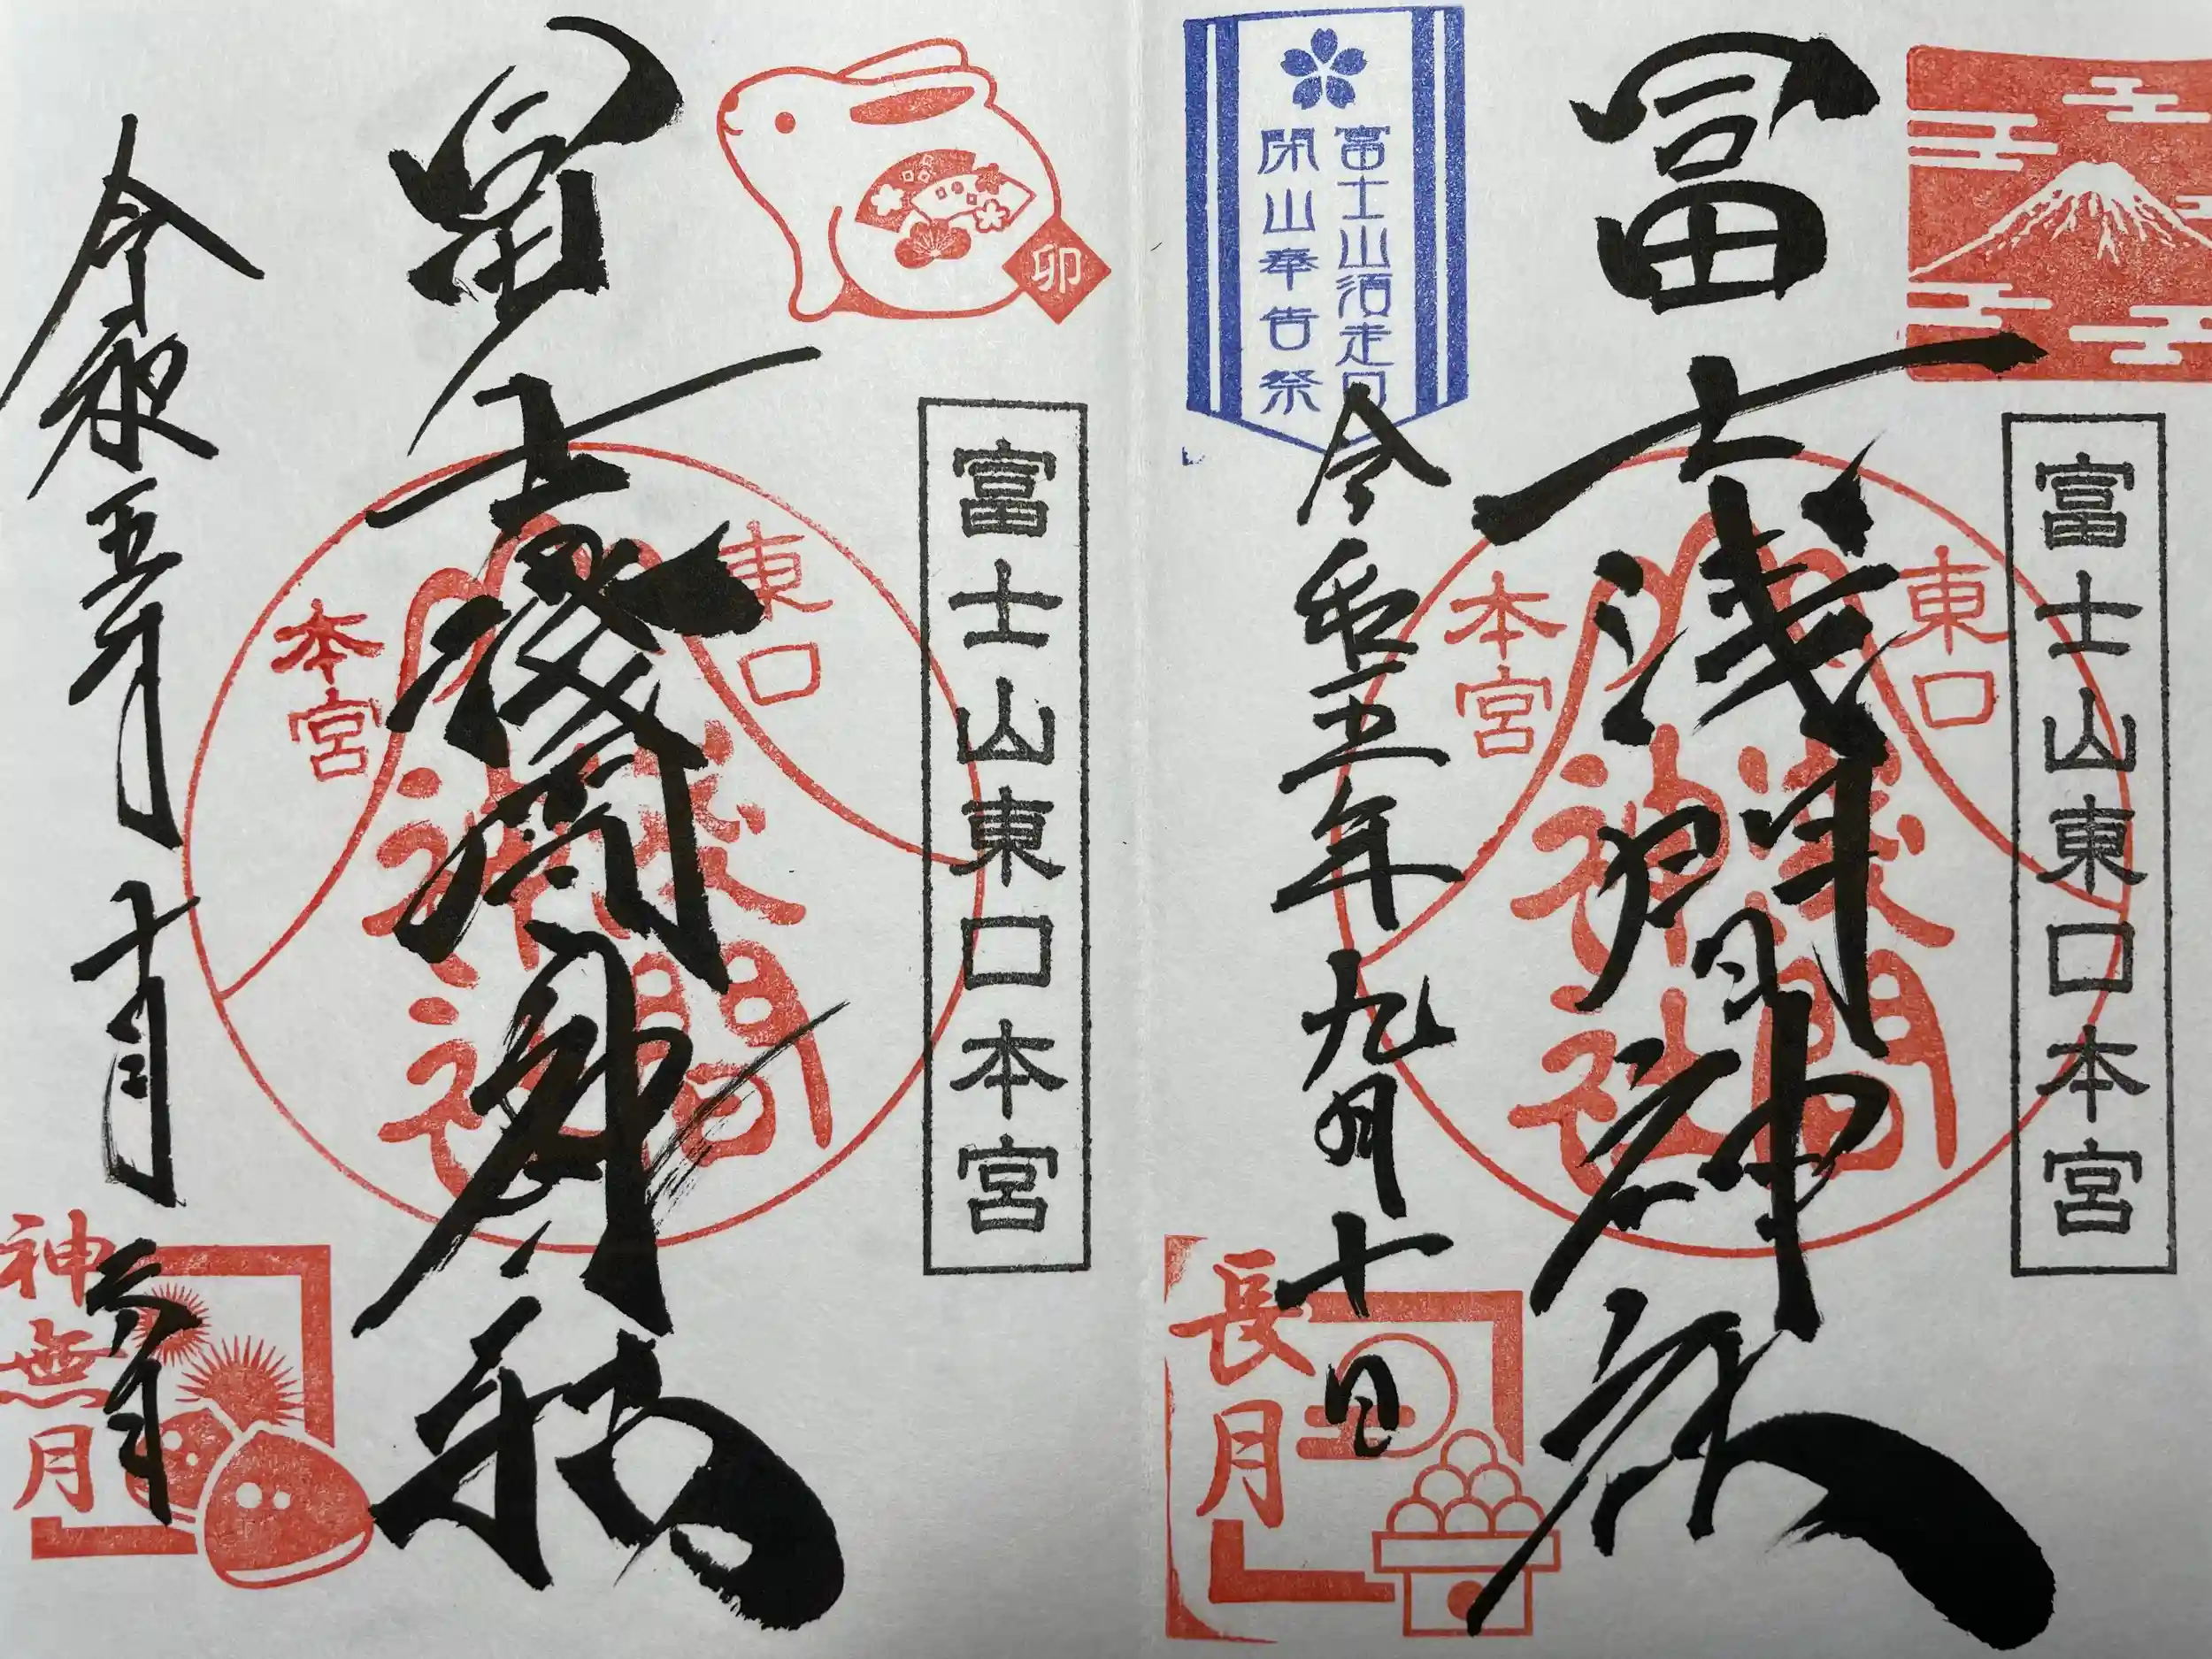 富士山東口本宮
冨士浅間神社
東口
本宮
浅間
神社
富士山須走口
閉山奉告祭
令和五年九月十日
長月
卯
富士山東口本宮
冨士浅間神社
東口
本宮
浅間
神社
令和五年
十月
神無月